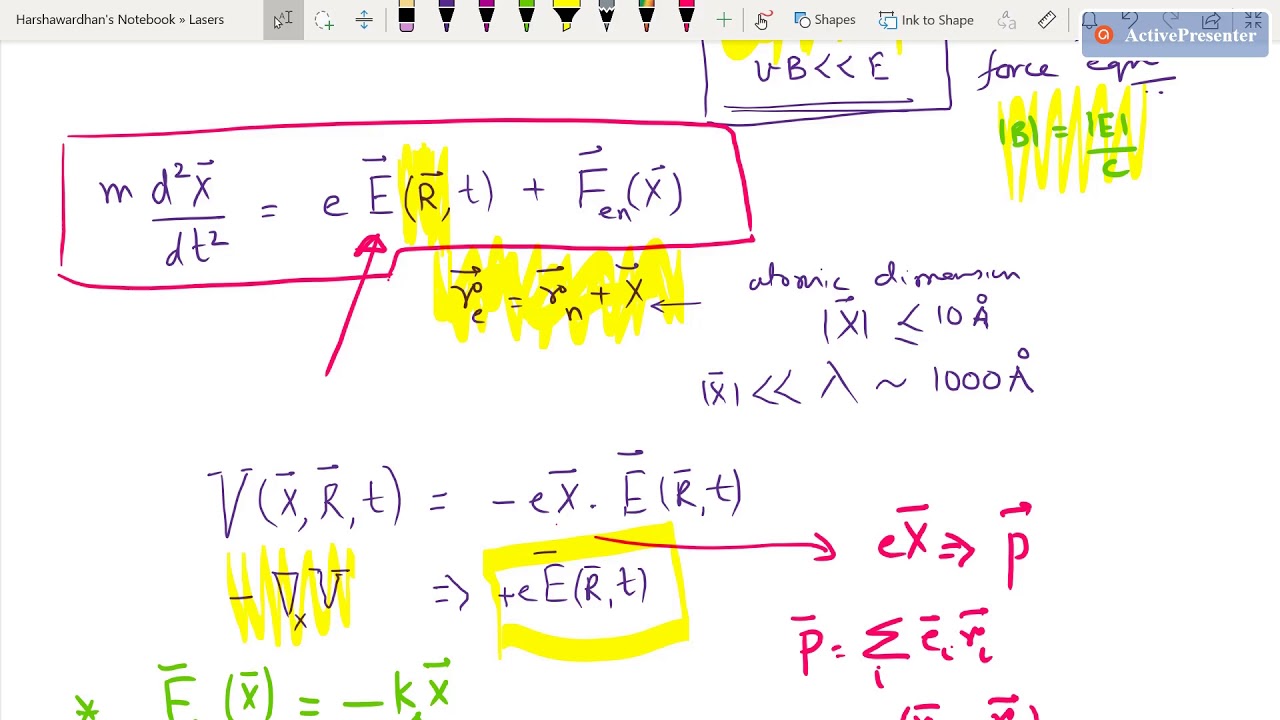 Harshawardhan's Notebook » Lasers
Shapes
Ink to Shape
ActivePresenter
vB << E
force eqn
|B| = |E|/c
m d²x⃗/dt² = e E⃗(R⃗, t) + F⃗en(x⃗)
r⃗e = r⃗n + x⃗ ←
atomic dimension
|x⃗| ≤ 10 Å
|x̄| << λ ~ 1000 Å
V̄(x̄, R̄, t) = -ex̄ · Ē(R̄, t)
ex̄ ⇒ p⃗
-∇x V̄ ⇒ +eĒ(R̄, t)
p̄ = Σi ēi r⃗i